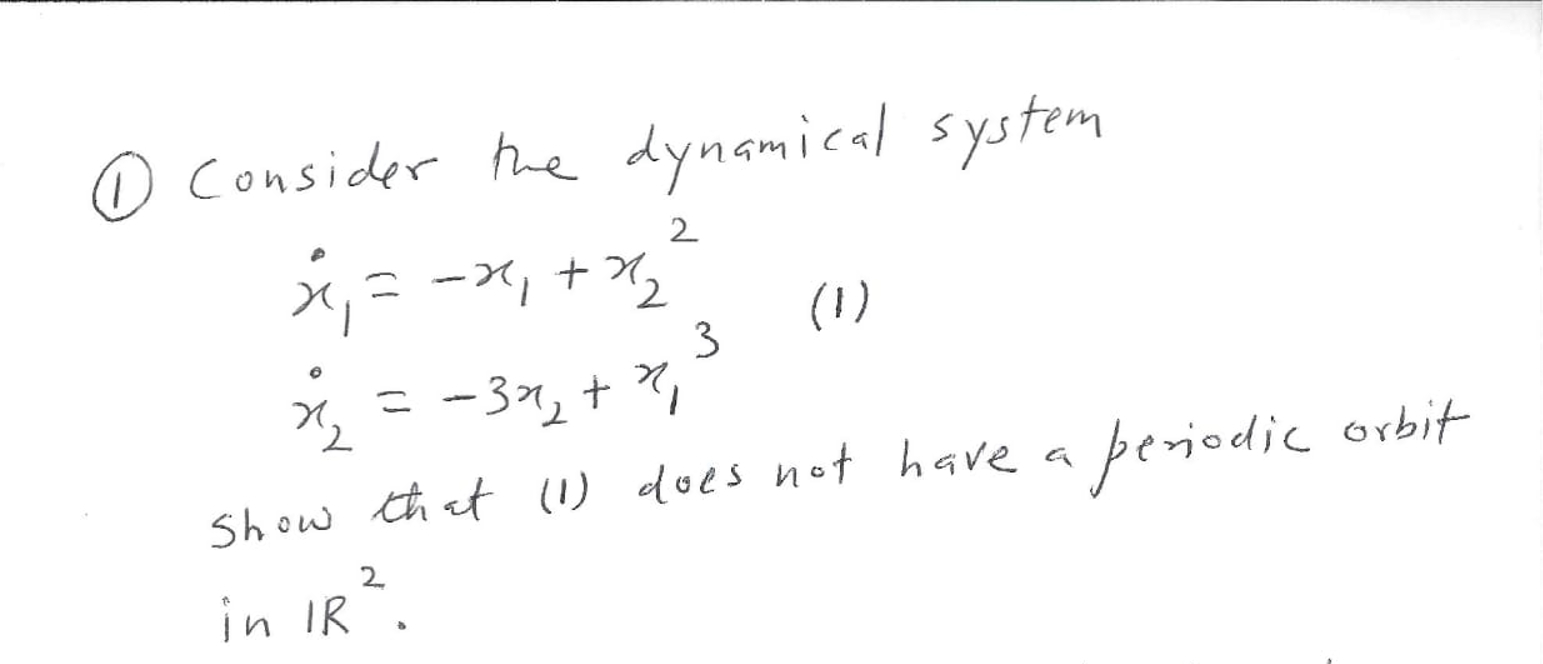 ① Consider the dynamical system
ẋ₁ = -x₁ + x₂²
(1)
ẋ₂ = -3x₂ + x₁³
show that (1) does not have a periodic orbit
in IR².